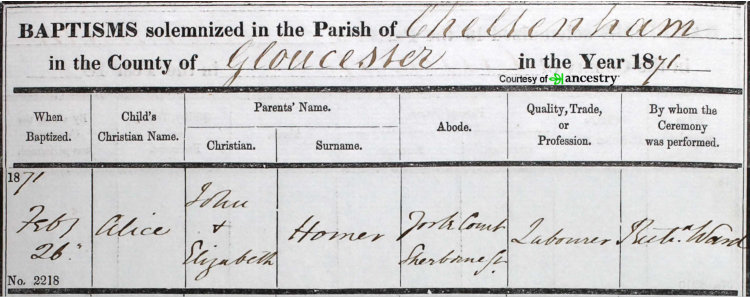 BAPTISMS solemnized in the Parish of Cheltenham
in the County of Gloucester in the Year 1871
Courtesy of ancestry
When Baptized.
Child's Christian Name.
Parents' Name.
Christian.
Surname.
Abode.
Quality, Trade, or Profession.
By whom the Ceremony was performed.
1871
Feby
26
No. 2218
Alice
John
+
Elizabeth
Horner
York Court
Sherborne St
Labourer
Ward